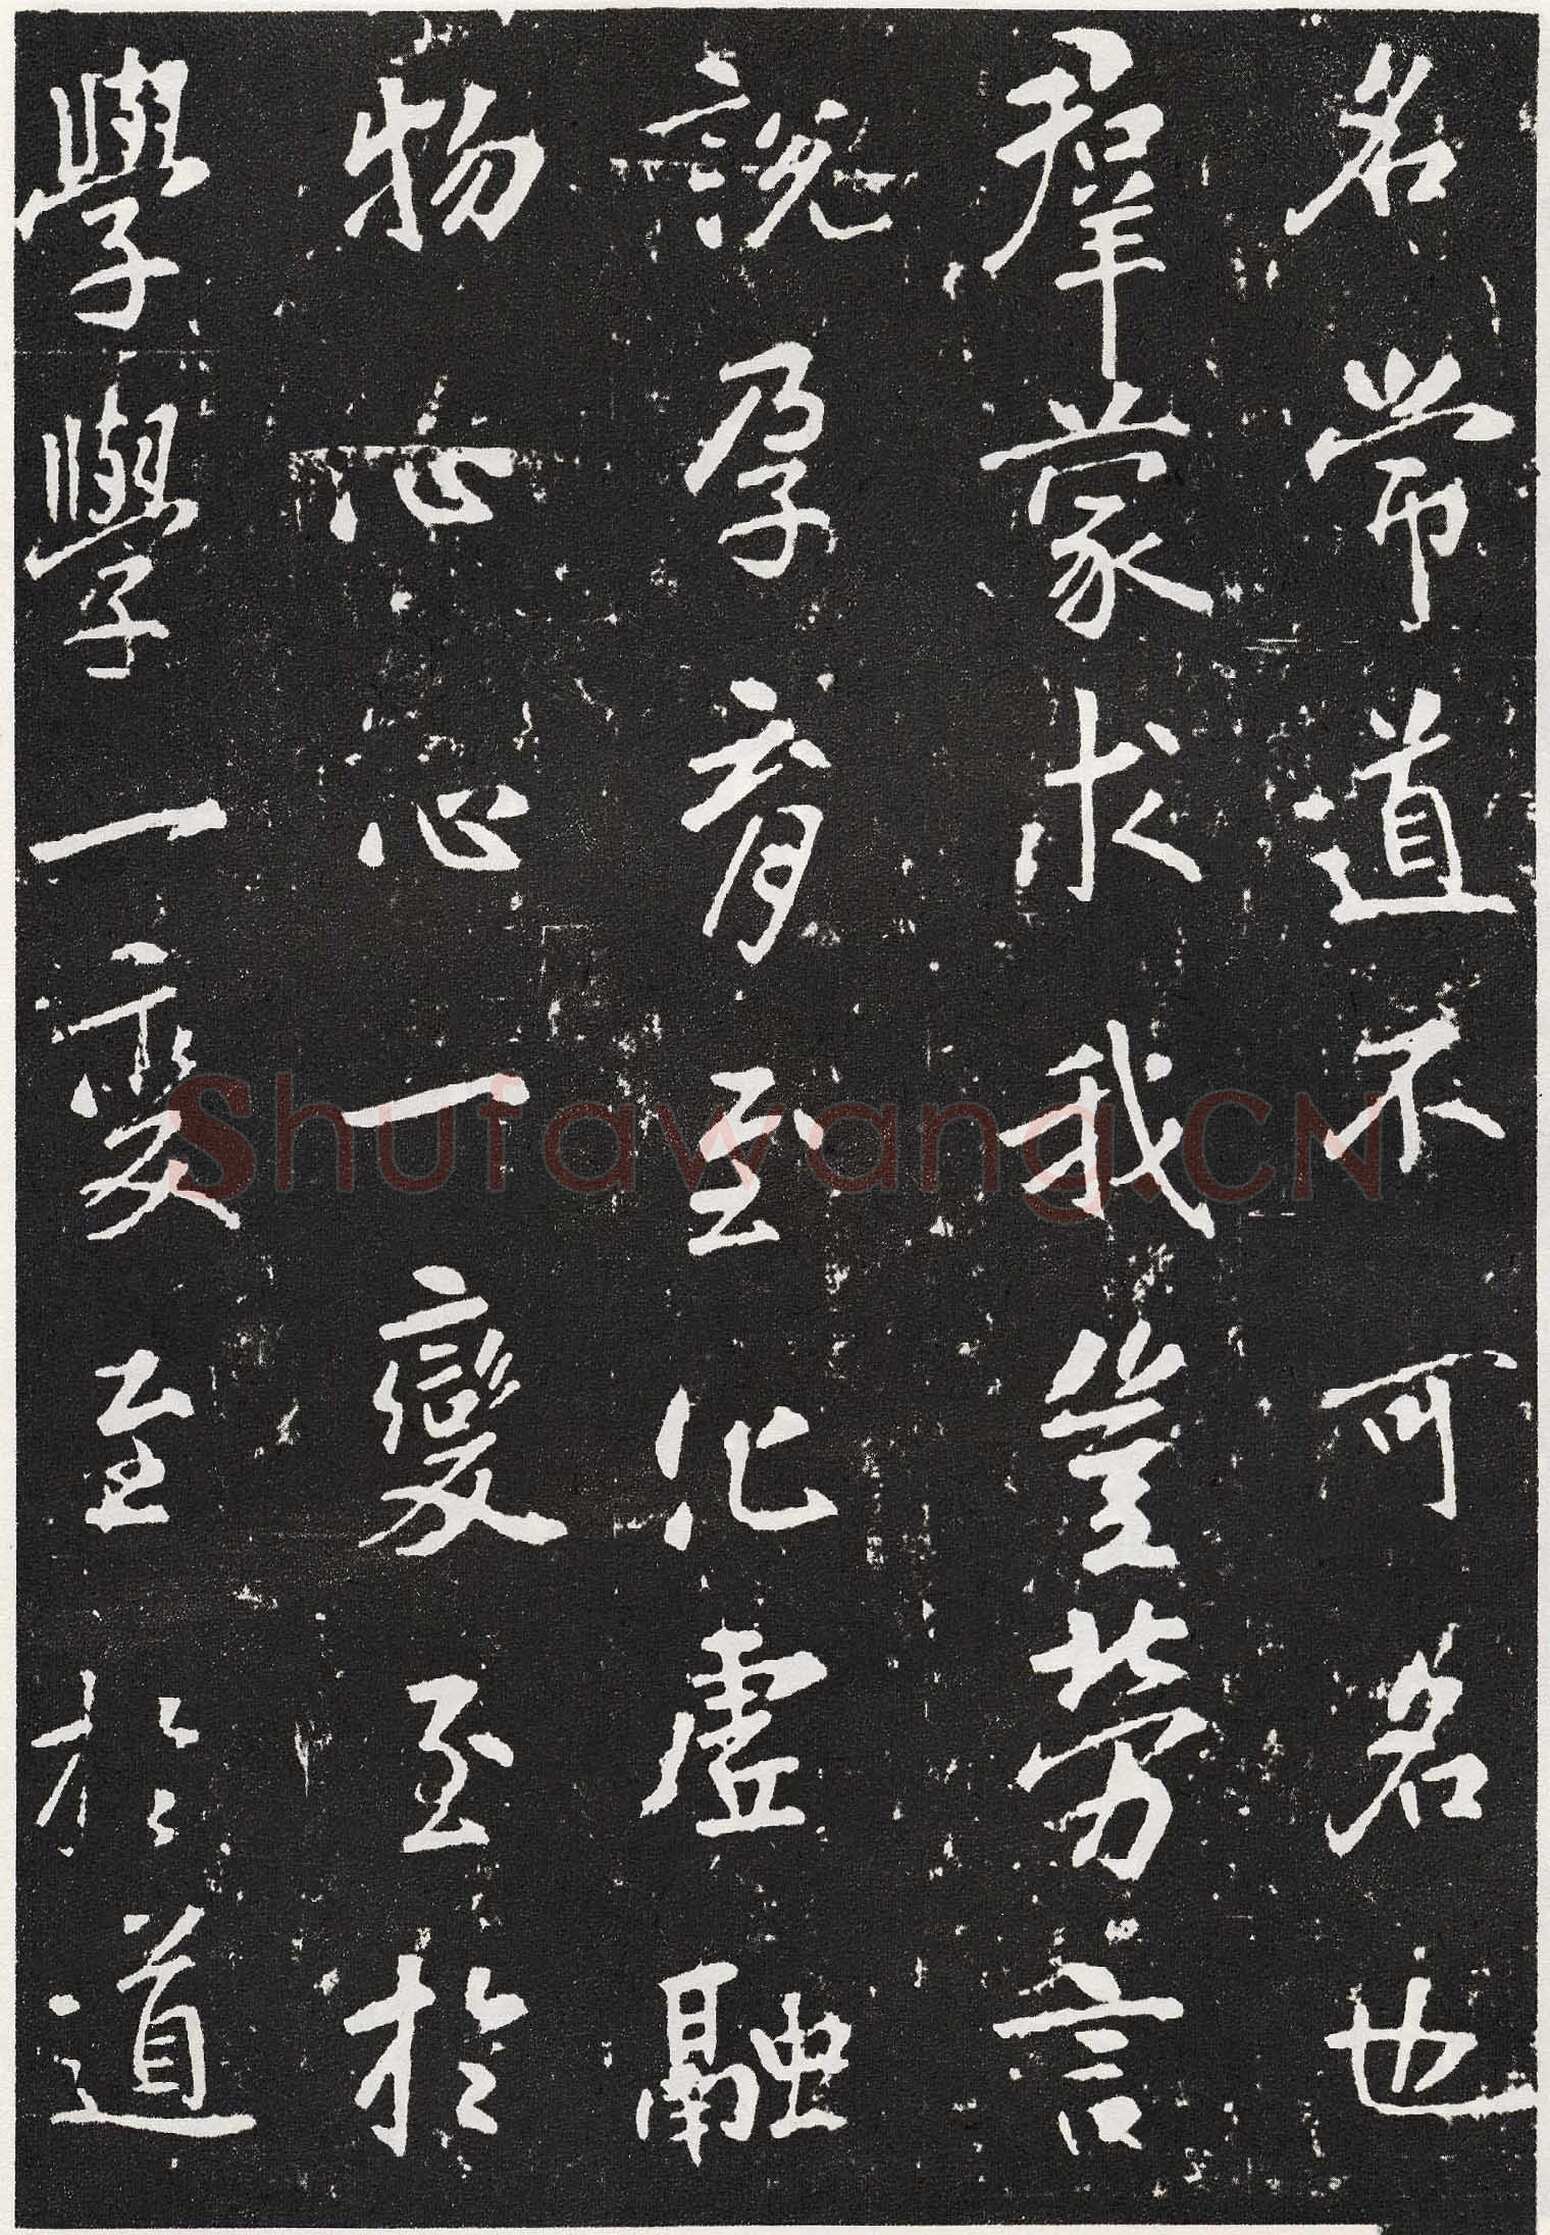 名常道不可名也
羣蒙求我豈勞言
說孕育至化虛融
物心心一變至於
學學一變至於道
Shufawang.CN